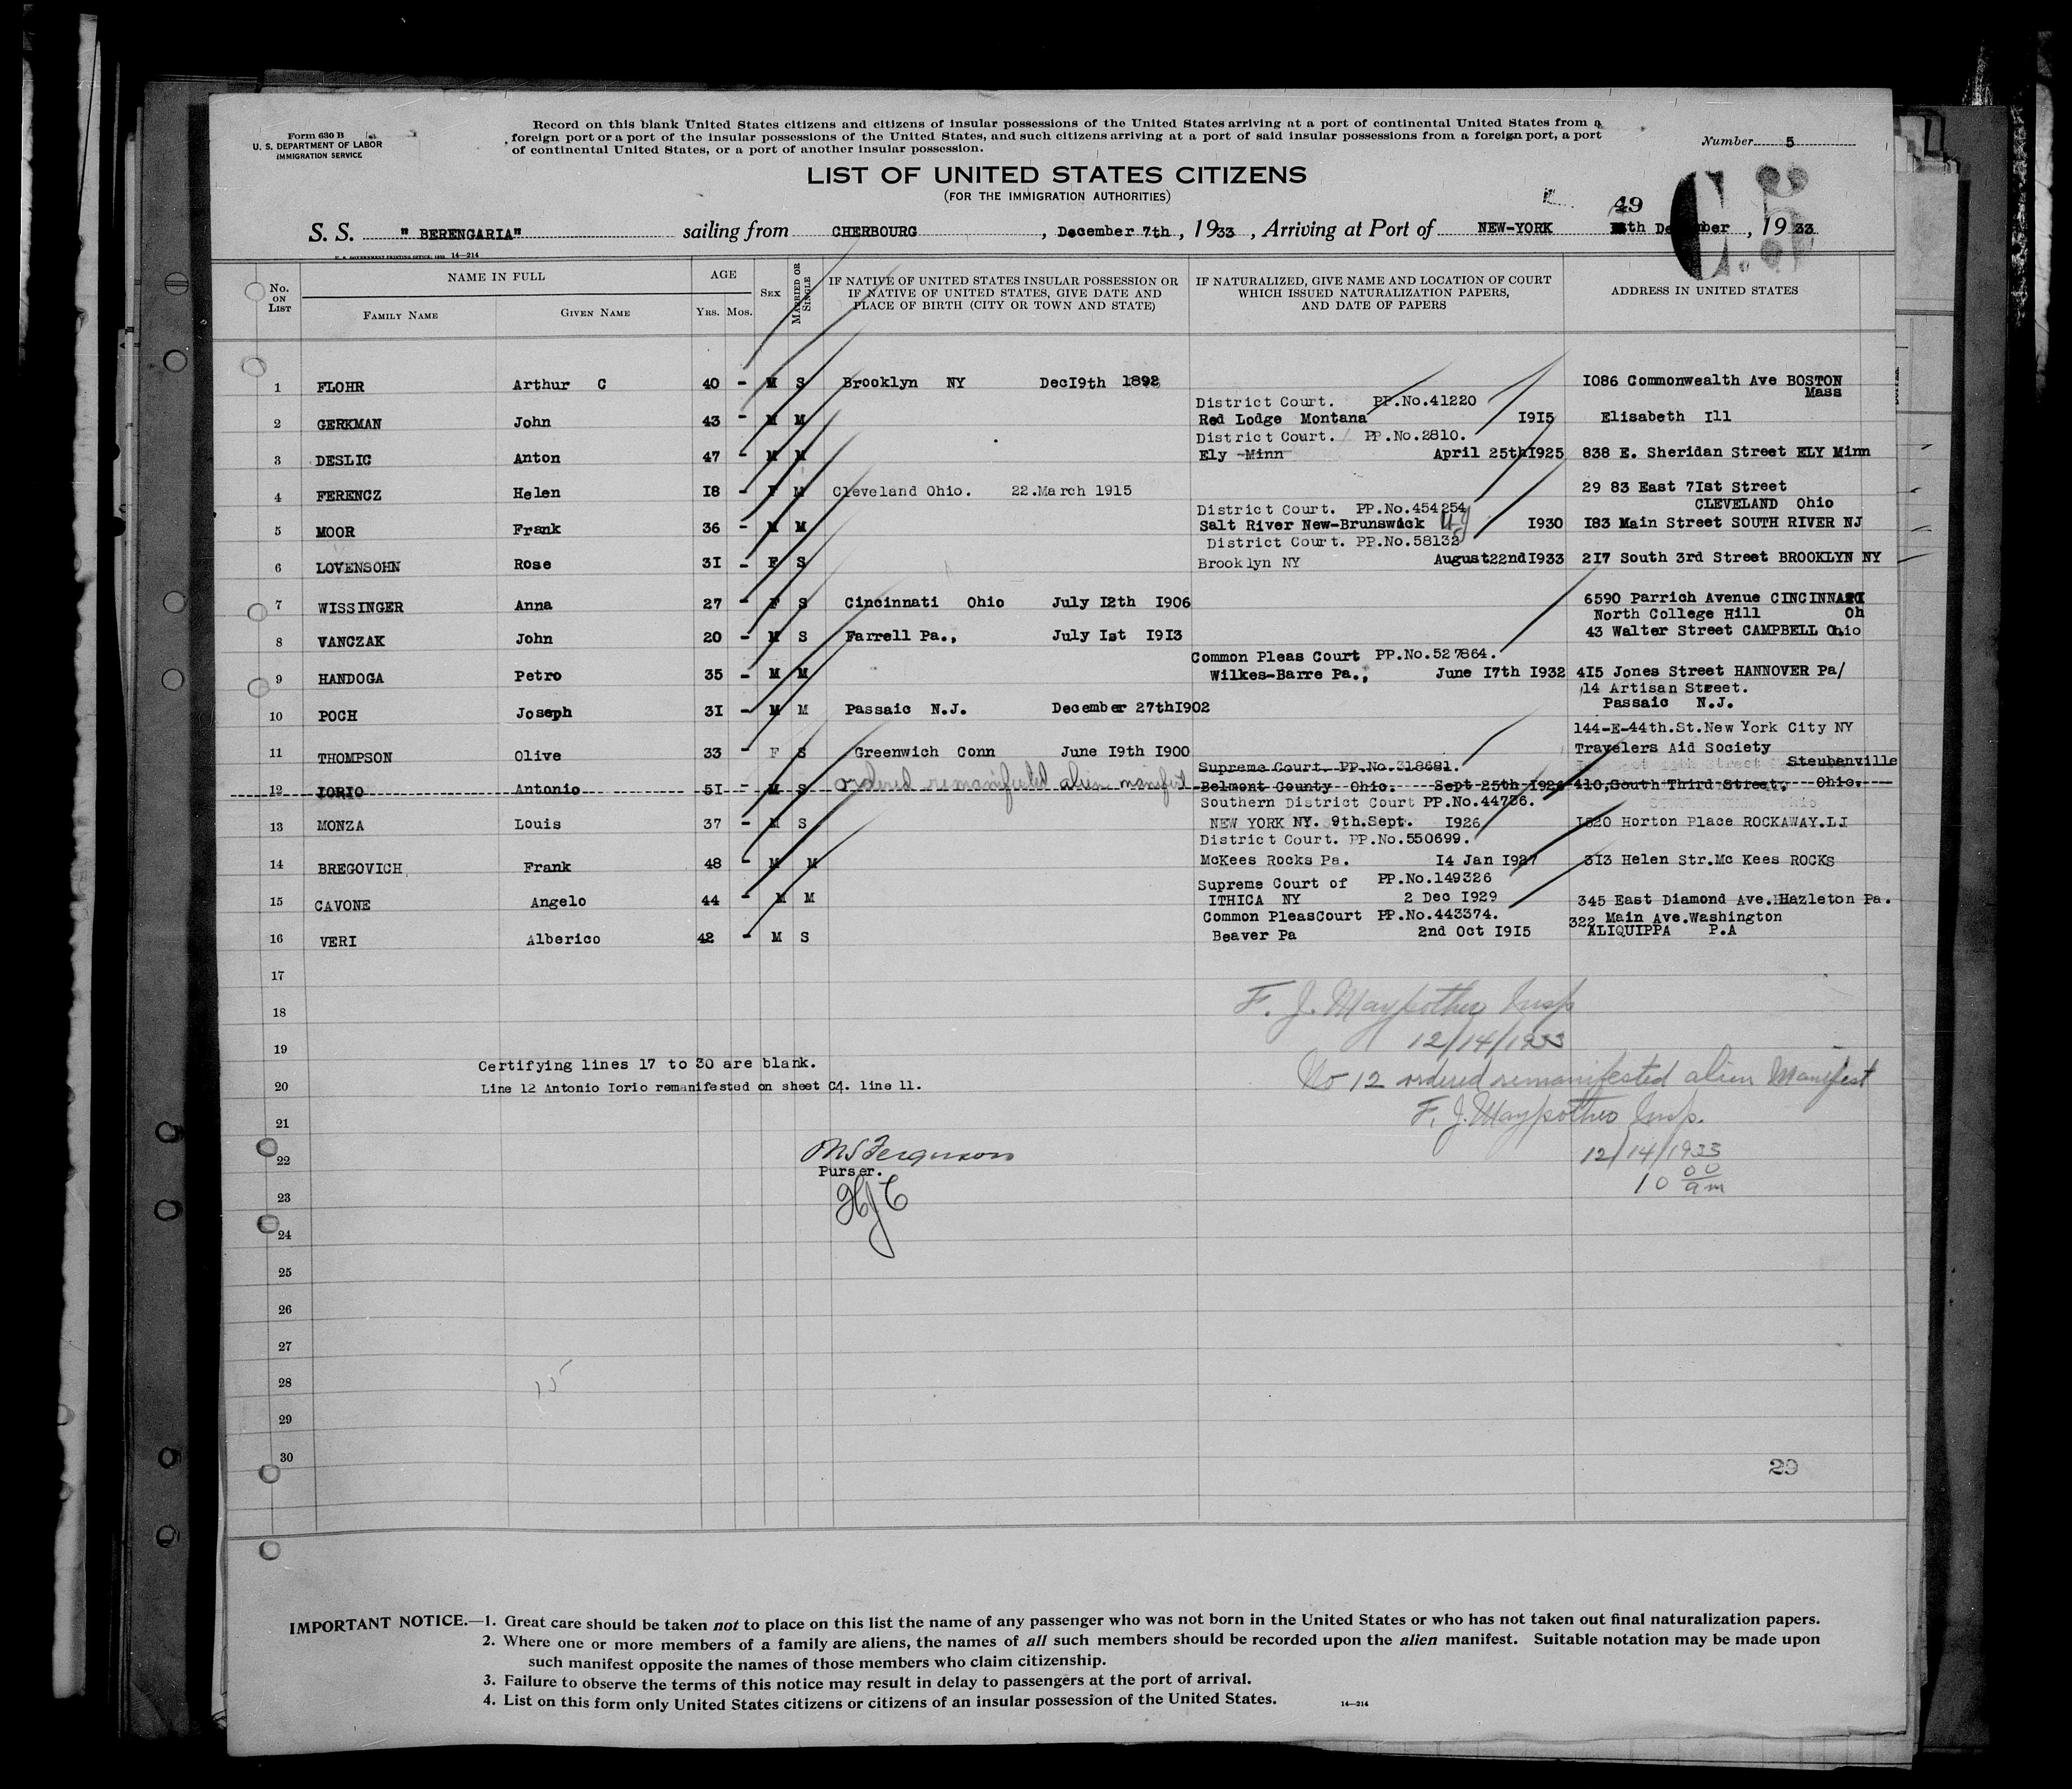 Form 630 B
U. S. DEPARTMENT OF LABOR
IMMIGRATION SERVICE
Record on this blank United States citizens and citizens of insular possessions of the United States arriving at a port of continental United States from a
foreign port or a port of the insular possessions of the United States, and such citizens arriving at a port of said insular possessions from a foreign port, a port
of continental United States, or a port of another insular possession.
Number 5
LIST OF UNITED STATES CITIZENS
(FOR THE IMMIGRATION AUTHORITIES)
49
C.5
S. S. " BERENGARIA" sailing from CHERBOURG , December 7th , 1933 , Arriving at Port of NEW-YORK December , 1933
U. S. GOVERNMENT PRINTING OFFICE: 14—214
No. ON LIST
NAME IN FULL
FAMILY NAME
GIVEN NAME
AGE
YRS. MOS.
SEX
MARRIED OR SINGLE
IF NATIVE OF UNITED STATES INSULAR POSSESSION OR
IF NATIVE OF UNITED STATES, GIVE DATE AND
PLACE OF BIRTH (CITY OR TOWN AND STATE)
IF NATURALIZED, GIVE NAME AND LOCATION OF COURT
WHICH ISSUED NATURALIZATION PAPERS,
AND DATE OF PAPERS
ADDRESS IN UNITED STATES
1 FLOHR Arthur C 40 - M S Brooklyn NY Dec I9th 1892 I086 Commonwealth Ave BOSTON
Mass
District Court. PP.No.41220
2 GERKMAN John 43 - M M Red Lodge Montana I9I5 Elisabeth Ill
District Court. PP.No.2810.
3 DESLIC Anton 47 - M M Ely -Minn April 25thI925 838 E. Sheridan Street ELY Minn
4 FERENCZ Helen I8 - F M Cleveland Ohio. 22.March 1915 29 83 East 7Ist Street
CLEVELAND Ohio
District Court. PP.No.454254
5 MOOR Frank 36 - M M Salt River New-Brunswick I930 I83 Main Street SOUTH RIVER NJ
District Court. PP.No.58132
6 LOVENSOHN Rose 3I - F S Brooklyn NY August22ndI933 2I7 South 3rd Street BROOKLYN NY
7 WISSINGER Anna 27 - F S Cincinnati Ohio July I2th I906 6590 Parrich Avenue CINCINNATI
North College Hill Oh
8 VANCZAK John 20 - M S Farrell Pa., July Ist I9I3 43 Walter Street CAMPBELL Ohio
Common Pleas Court PP.No.527864.
9 HANDOGA Petro 35 - M M Wilkes-Barre Pa., June I7th I932 4I5 Jones Street HANNOVER Pa/
14 Artisan Street.
10 POCH Joseph 3I - M M Passaic N.J. December 27thI902 Passaic N.J.
144-E-44th.St.New York City NY
11 THOMPSON Olive 33 - F S Greenwich Conn June I9th I900 Travelers Aid Society
Supreme Court PP.No.318681. Steubenville
12 IORIO Antonio 5I - M S ordered remanifested alien manifest Belmont County Ohio. Sept 25th I92 410,South Third Street, Ohio.
Southern District Court PP.No.44736.
13 MONZA Louis 37 - M S NEW YORK NY. 9th.Sept. I926 I520 Horton Place ROCKAWAY.LI
District Court. PP.No.550699.
14 BREGOVICH Frank 48 - M M McKees Rocks Pa. I4 Jan I927 3I3 Helen Str.Mc Kees ROCKS
Supreme Court of PP.No.149326
15 CAVONE Angelo 44 - M M ITHICA NY 2 Dec I929 345 East Diamond Ave.Hazleton Pa.
Common PleasCourt PP.No.443374. 322 Main Ave.Washington
16 VERI Alberico 42 - M S Beaver Pa 2nd Oct I9I5 ALIQUIPPA P.A
17
18 F. J. Maypother Insp
12/14/1933
19
Certifying lines 17 to 30 are blank.
No 12 ordered remanifested alien Manifest
20 Line 12 Antonio Iorio remanifested on sheet C4. line 11.
F. J. Maypother Insp.
21
22 Ferguson 12/14/1933
Purser.
10 00 am
23 HJC
24
25
26
27
28
15
29
30
29
IMPORTANT NOTICE.—1. Great care should be taken not to place on this list the name of any passenger who was not born in the United States or who has not taken out final naturalization papers.
2. Where one or more members of a family are aliens, the names of all such members should be recorded upon the alien manifest. Suitable notation may be made upon
such manifest opposite the names of those members who claim citizenship.
3. Failure to observe the terms of this notice may result in delay to passengers at the port of arrival.
4. List on this form only United States citizens or citizens of an insular possession of the United States.
14—214